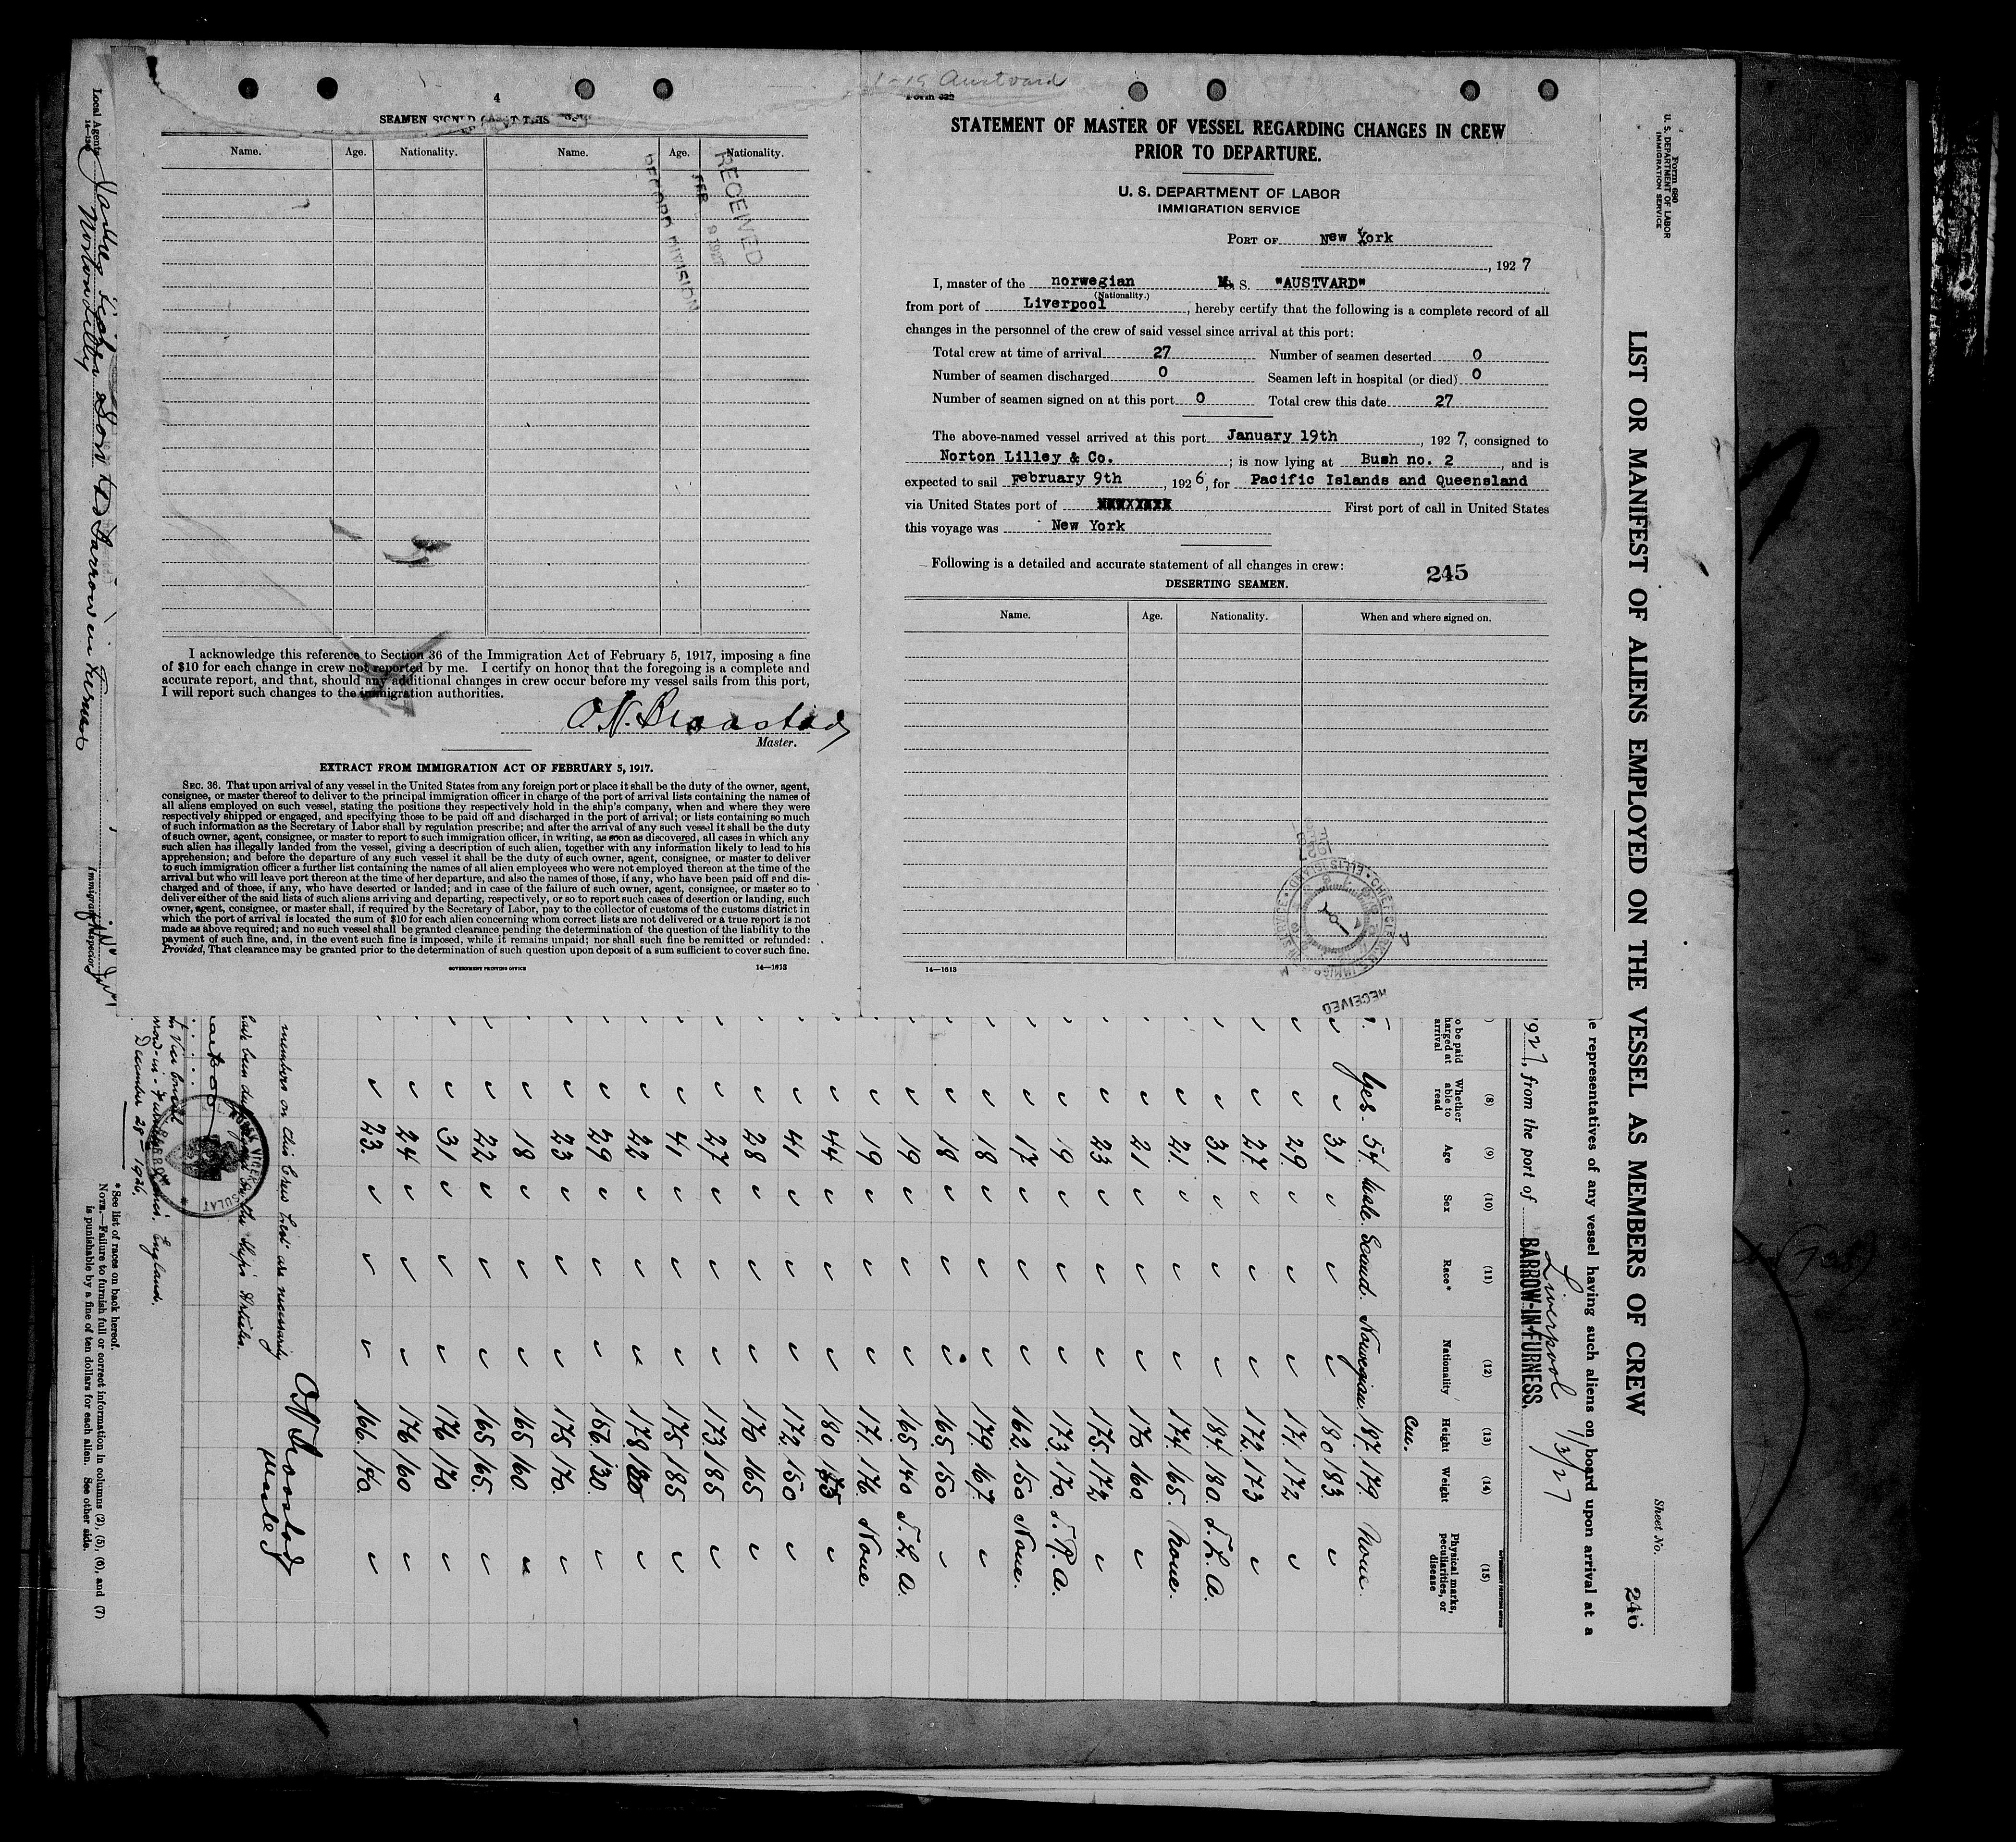 1-19 Austvard
4
SEAMEN SIGNED
Name. Age. Nationality. Name. Age. Nationality.
RECEIVED
FEB 9 1927
RECORD DIVISION
I acknowledge this reference to Section 36 of the Immigration Act of February 5, 1917, imposing a fine
of $10 for each change in crew not reported by me. I certify on honor that the foregoing is a complete and
accurate report, and that, should any additional changes in crew occur before my vessel sails from this port,
I will report such changes to the immigration authorities.
O.N. Braastad
Master.
EXTRACT FROM IMMIGRATION ACT OF FEBRUARY 5, 1917.
SEC. 36. That upon arrival of any vessel in the United States from any foreign port or place it shall be the duty of the owner, agent,
consignee, or master thereof to deliver to the principal immigration officer in charge of the port of arrival lists containing the names of
all aliens employed on such vessel, stating the positions they respectively hold in the ship's company, when and where they were
respectively shipped or engaged, and specifying those to be paid off and discharged in the port of arrival; or lists containing so much
of such information as the Secretary of Labor shall by regulation prescribe; and after the arrival of any such vessel it shall be the duty
of such owner, agent, consignee, or master to report to such immigration officer, in writing, as soon as discovered, all cases in which any
such alien has illegally landed from the vessel, giving a description of such alien, together with any information likely to lead to his
apprehension; and before the departure of any such vessel it shall be the duty of such owner, agent, consignee, or master to deliver
to such immigration officer a further list containing the names of all alien employees who were not employed thereon at the time of the
arrival but who will leave port thereon at the time of her departure, and also the names of those, if any, who have been paid off and dis-
charged and of those, if any, who have deserted or landed; and in case of the failure of such owner, agent, consignee, or master so to
deliver either of the said lists of such aliens arriving and departing, respectively, or so to report such cases of desertion or landing, such
owner, agent, consignee, or master shall, if required by the Secretary of Labor, pay to the collector of customs of the customs district in
which the port of arrival is located the sum of $10 for each alien concerning whom correct lists are not delivered or a true report is not
made as above required; and no such vessel shall be granted clearance pending the determination of the question of the liability to the
payment of such fine, and, in the event such fine is imposed, while it remains unpaid; nor shall such fine be remitted or refunded:
Provided, That clearance may be granted prior to the determination of such question upon deposit of a sum sufficient to cover such fine.
GOVERNMENT PRINTING OFFICE 14—1613
Form 689
STATEMENT OF MASTER OF VESSEL REGARDING CHANGES IN CREW
PRIOR TO DEPARTURE.
U. S. DEPARTMENT OF LABOR
IMMIGRATION SERVICE
PORT OF New York
, 1927
I, master of the norwegian M. S. "AUSTVARD"
(Nationality.)
from port of Liverpool, hereby certify that the following is a complete record of all
changes in the personnel of the crew of said vessel since arrival at this port:
Total crew at time of arrival 27 Number of seamen deserted 0
Number of seamen discharged 0 Seamen left in hospital (or died) 0
Number of seamen signed on at this port 0 Total crew this date 27
The above-named vessel arrived at this port January 19th, 1927, consigned to
Norton Lilley & Co.; is now lying at Bush no. 2, and is
expected to sail February 9th, 1926, for Pacific Islands and Queensland
via United States port of First port of call in United States
this voyage was New York
Following is a detailed and accurate statement of all changes in crew:
245
DESERTING SEAMEN.
Name. Age. Nationality. When and where signed on.
14—1613
RECEIVED
Form 680
U. S. DEPARTMENT OF LABOR
IMMIGRATION SERVICE
LIST OR MANIFEST OF ALIENS EMPLOYED ON THE VESSEL AS MEMBERS OF CREW
Sheet No.
246
representatives of any vessel having such aliens on board upon arrival at a
1927, from the port of BARROW-IN-FURNESS.
Liverpool 1/3/27
(8) (9) (10) (11) (12) (13) (14) (15)
Whether able to read Age Sex Race* Nationality Height Weight Physical marks, peculiarities, or disease
Cm.
Yes. 54. Male. Scand. Norwegian 187. 179. None.
31 180 183.
29. 171. 172
27. 172. 173
31. 184. 180. T. L. A.
21. 174. 165. None.
21 170 160.
23 175. 172
19 173. 170. T. R. A.
17 162. 150 None.
18. 179. 167.
18 165. 150
19 165 140 T. L. A.
19 171. 176. None
44 180
41 172. 150
28 170 165
27 173 185
41 175 185
22 178
29 156. 130
23 175 170.
18 165 160.
22 165 165.
31 176 170
24 176 160
23. 166. 140.
members on this Crew List are necessarily
O.N. Braastad
Master
England.
December 28th 1926.
*See list of races on back hereof.
NOTE.—Failure to furnish full or correct information in columns (2), (5), (6), and (7)
is punishable by a fine of ten dollars for each alien. See other side.
Local Agents
Norton Lilley
Immigrant Inspector.